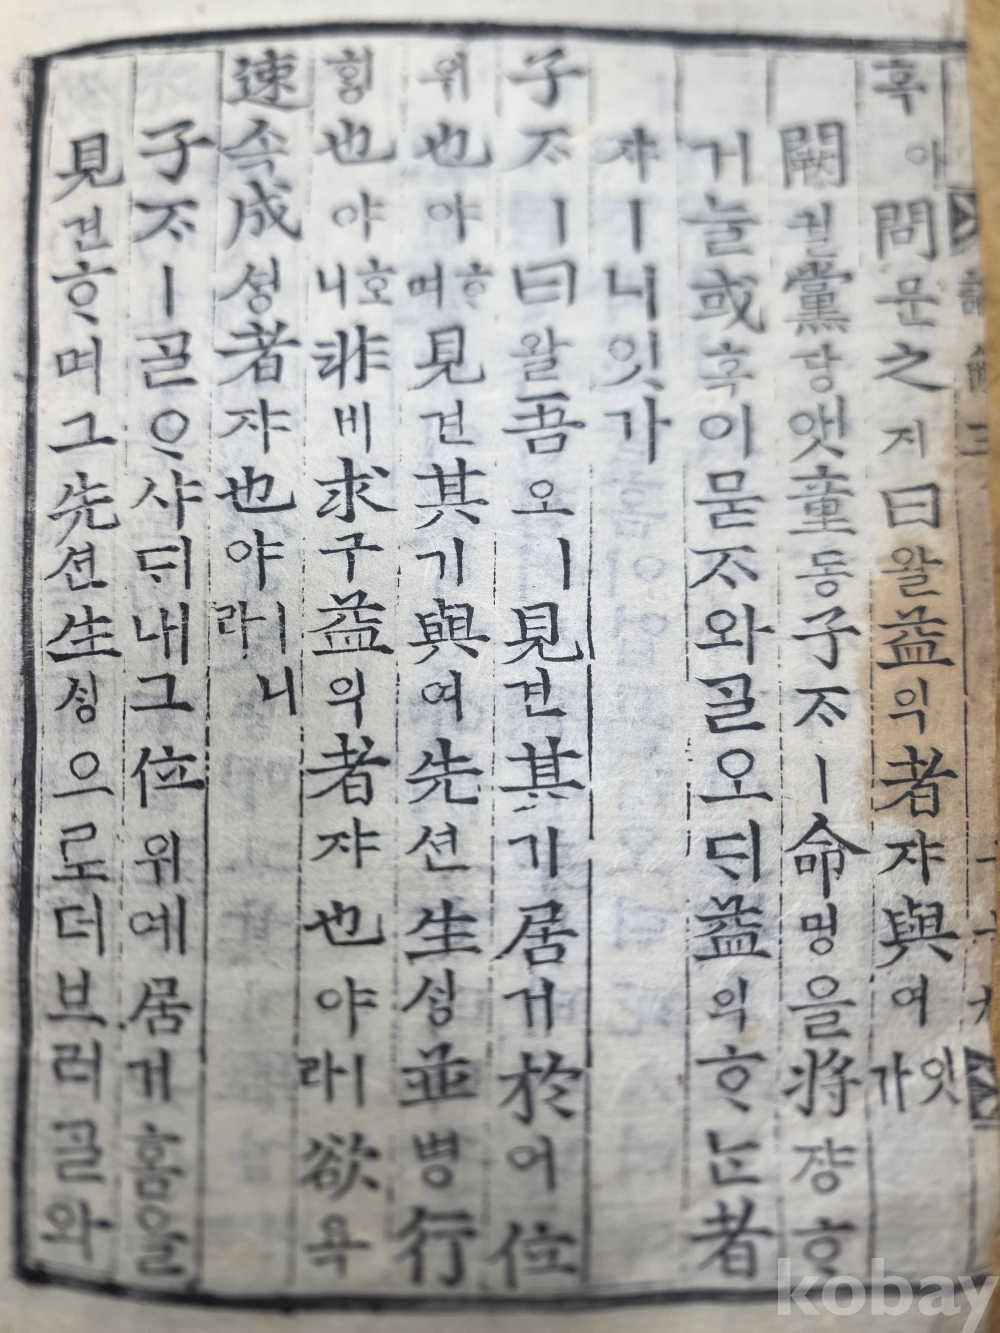 혹아問문之지曰왈益익者쟈與여잇가
闕궐黨당앳童동子ᄌᆞㅣ命명을將쟝ᄒᆞ
거늘或혹이묻ᄌᆞ와ᄀᆞᆯ오ᄃᆡ益익ᄒᆞᄂᆞᆫ者
쟈ㅣ니잇가
子ᄌᆞㅣ曰왈吾오ㅣ見견其기居거於어位
위也야ᄒᆞ며見견其기與여先션生ᄉᆡᆼ並병行
ᄒᆡᆼ也야호니非비求구益익者쟈也야ㅣ라欲욕
速속成셩者쟈也야ㅣ니라
子ᄌᆞㅣᄀᆞᆯᄋᆞ샤ᄃᆡ내그位위예居거홈을
見견ᄒᆞ며그先션生ᄉᆡᆼ으로더브러ᄀᆞᆯ와
kobay